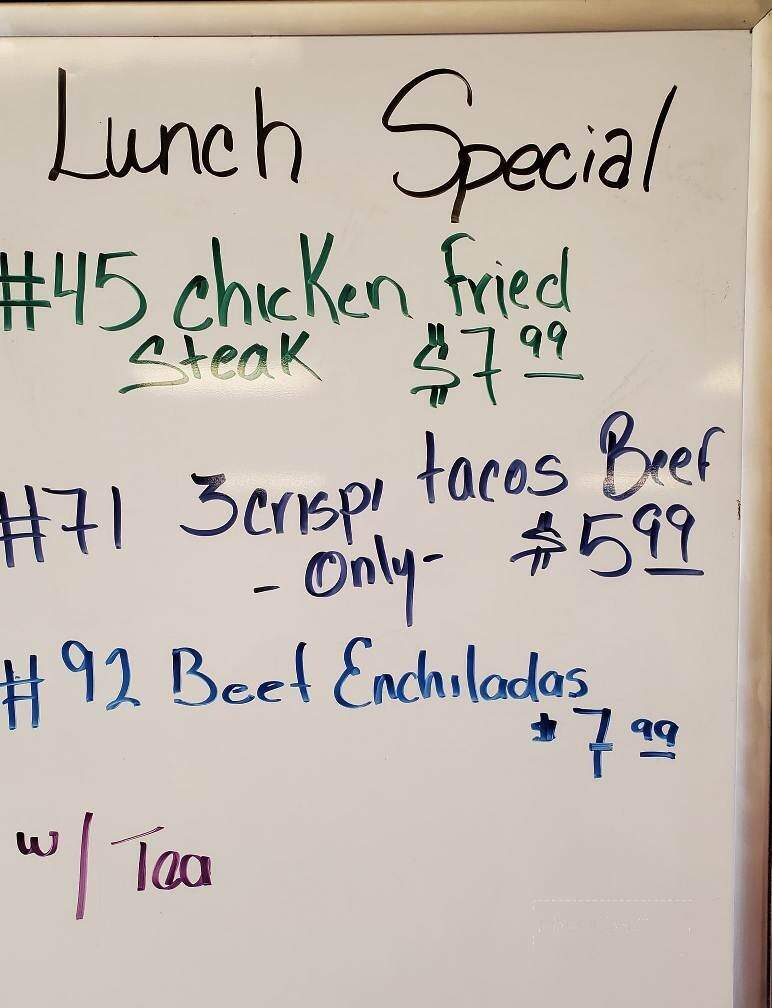 Lunch Special
#45 chicken fried
steak $7.99
#71 3 crispi tacos Beef
- Only - $5.99
#92 Beef Enchiladas
$7.99
w/ Tea